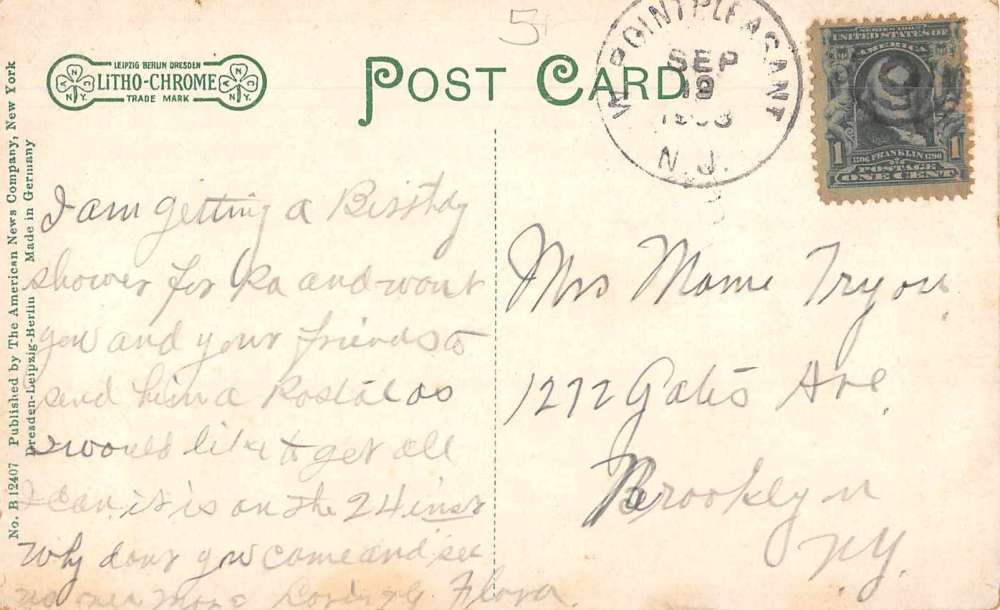 LEIPZIG BERLIN DRESDEN
LITHO-CHROME
TRADE MARK
N N Y
N N Y
POST CARD
W. POINT PLEASANT
SEP
19
N. J.
SERIES 1902
UNITED STATES OF
AMERICA
1 1
1706 FRANKLIN 1790
POSTAGE
ONE CENT
No. B 12407 Published by The American News Company, New York
Dresden-Leipzig-Berlin Made in Germany
I am getting a Birthdy
shower for Pa and want
you and your friends to
send him a Postal as
I would like to get all
I can it is on the 24 inst
Why dont you come and see
us Lovingly Flora.
Mrs Mame Tryon
1272 Gates Ave.
Brooklyn
N.Y.